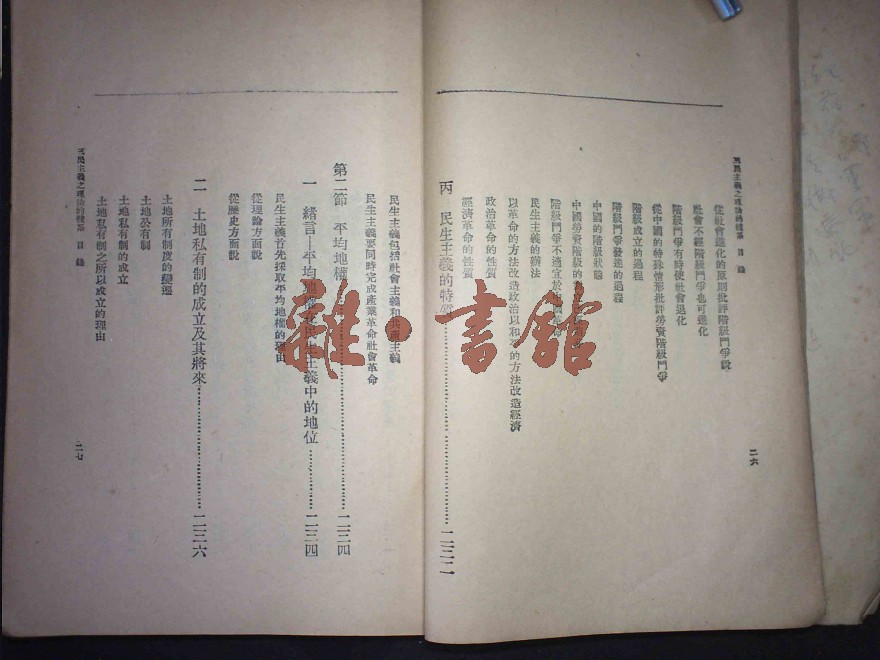 三民主義之理論的體系 目錄
從社會進化的原則批評階級鬥爭說
社會不經階級鬥爭也可進化
階級鬥爭有時使社會退化
從中國的特殊情形批評勞資階級鬥爭
階級成立的過程
階級鬥爭發達的過程
中國的階級狀態
中國勞資階級的
階級鬥爭不適宜於
民生主義的辦法
以革命的方法改造政治以和平的方法改造經濟
政治革命的性質
經濟革命的性質
丙 民生主義的特 二三二
二六
民生主義包括社會主義和共產主義
民生主義要同時完成產業革命社會革命
第二節 平均地權 二三四
一 緒言—平均地權在民生主義中的地位 二三四
民生主義首先採取平均地權的理由
從理論方面說
從歷史方面說
二 土地私有制的成立及其將來 二三六
土地所有制度的變遷
土地公有制
土地私有制的成立
土地私有制之所以成立的理由
三民主義之理論的體系 目錄
二七
雜·書館